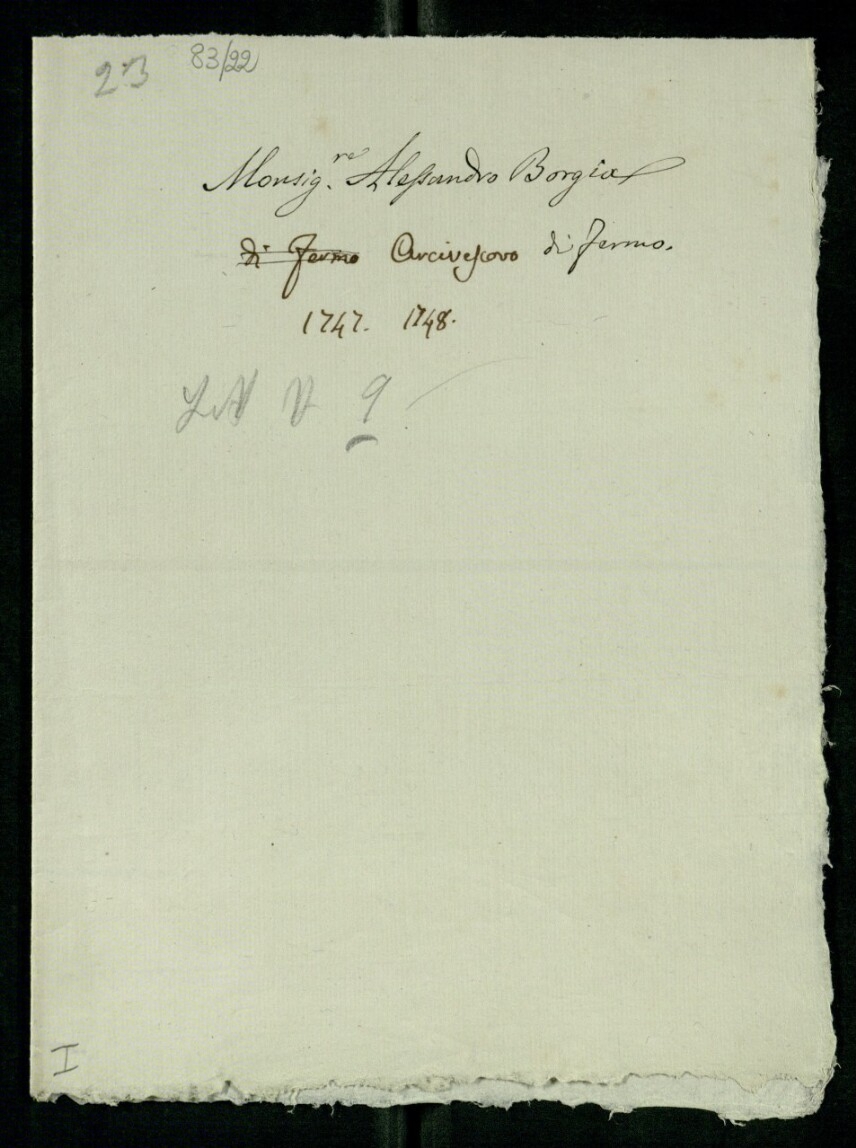 23 83/22
Monsig.re Alessandro Borgia
di Fermo Arcivescovo di Fermo.
1747. 1748.
9
I